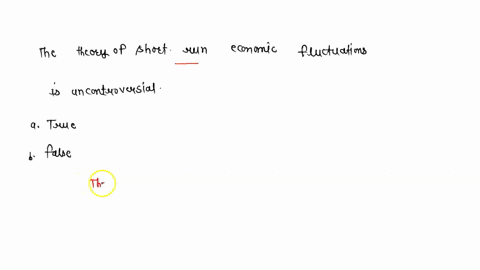 The theory of short run economic fluctuations
is uncontroversial.
a. True
b. false
Th